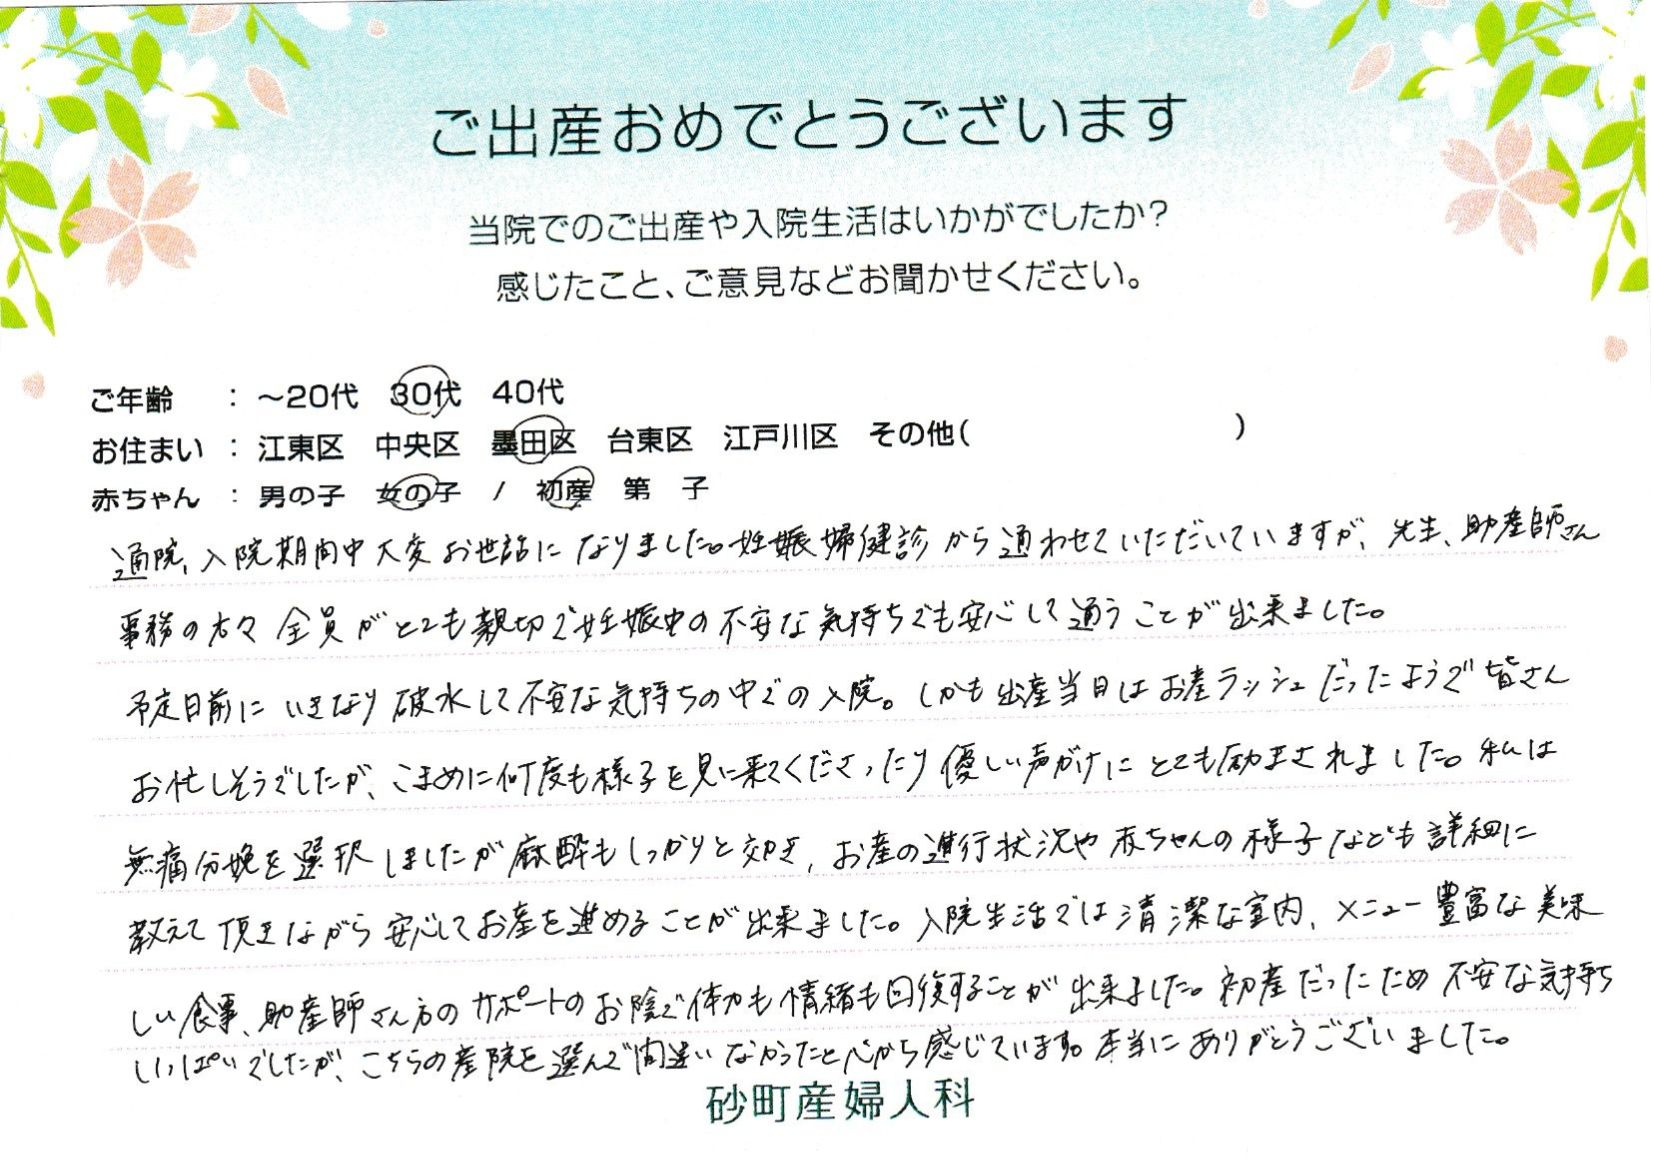 ご出産おめでとうございます
当院でのご出産や入院生活はいかがでしたか?
感じたこと、ご意見などお聞かせください。
ご年齢 : ～20代 30代 40代
お住まい : 江東区 中央区 墨田区 台東区 江戸川区 その他( )
赤ちゃん : 男の子 女の子 / 初産 第 子
通院、入院期間中大変お世話になりました。妊娠婦健診から通わせていただいていますが、先生、助産師さん
事務の方々全員がとても親切で妊娠中の不安な気持ちでも安心して通うことが出来ました。
予定日前にいきなり破水して不安な気持ちの中での入院。しかも出産当日はお産ラッシュだったようで皆さん
お忙しそうでしたが、こまめに何度も様子を見に来てくださったり優しい声がけにとても励まされました。私は
無痛分娩を選択しましたが麻酔もしっかりと効き、お産の進行状況や赤ちゃんの様子なども詳細に
教えて頂きながら安心してお産を進めることが出来ました。入院生活では清潔な室内、メニュー豊富な美味
しい食事、助産師さん方のサポートのお陰で体力も情緒も回復することが出来ました。初産だったため不安な気持ち
いっぱいでしたが、こちらの産院を選んで間違いなかったと心から感じています。本当にありがとうございました。
砂町産婦人科